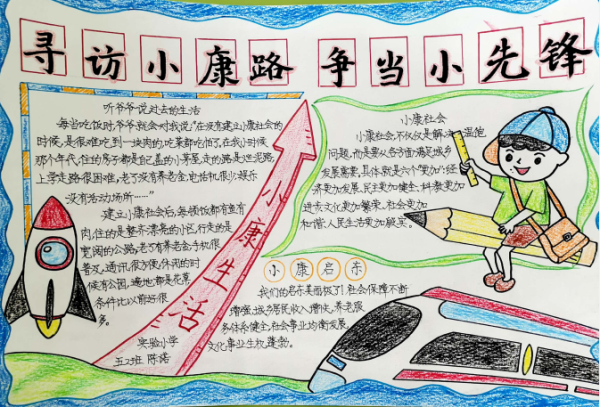 寻访小康路 争当小先锋
听爷爷说过去的生活
每当吃饭时,爷爷就会对我说:"在没有建立小康社会的
时候,是很难吃到一块肉的,吃菜都吃怕了,在我小时候
那个年代,住的房子都是自己盖的小茅屋,走的路是泥路,
上学走路很困难,老了没有养老金,电话机很少,娱乐
没有活动场所……"
建立小康社会后,每顿饭都有鱼有
肉,住的是整齐漂亮的小区,行走的是
宽阔的公路,老了有养老金,手机很
普及,通讯很方便,休闲的时
候有公园,遍地都是花草,
条件比以前好很
多。
实验小学
五2班 陈诺
小康生活
小康社会
小康社会,不仅仅是解决温饱
问题,而是要从各方面满足城乡
发展需要,具体就是六个"更加":经
济更加发展,民主更加健全,科教更加
进步,文化更加繁荣,社会更加
和谐,人民生活更加殷实。
小康启东
我们的启东美丽极了!社会保障不断
增强,城乡居民收入增快,养老服
务体系健全,社会事业均衡发展,
文化事业生机蓬勃。